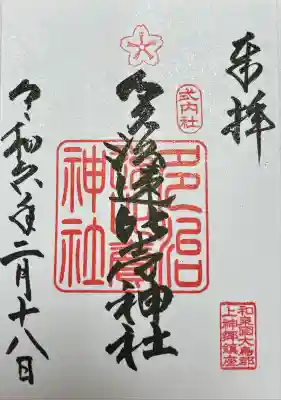 奉拝
式内社
和泉国大鳥郡
上神郷鎮座
多治速比売神社
多治
神社
令和六年二月十八日